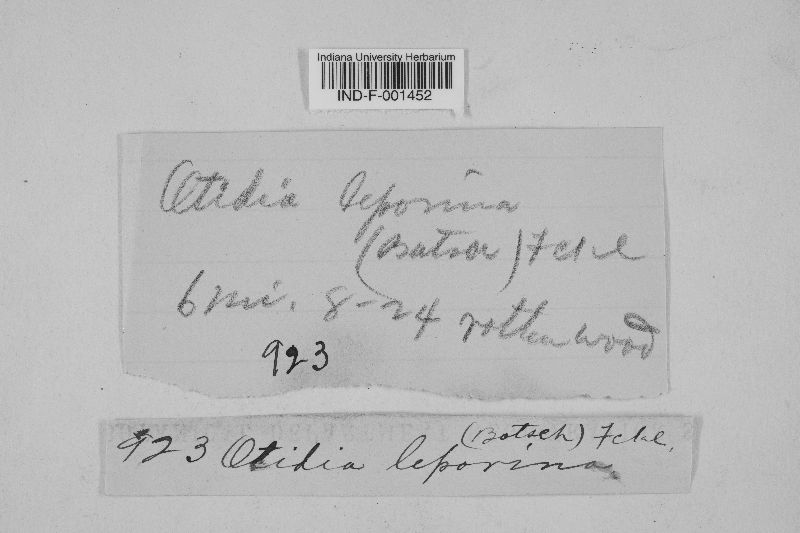 Indiana University Herbarium
IND-F-001452
Otidia leporina
(Batsch) Fckl
6 mi. 8-24 rotten wood
923
923 Otidia leporina (Batsch) Fckl.